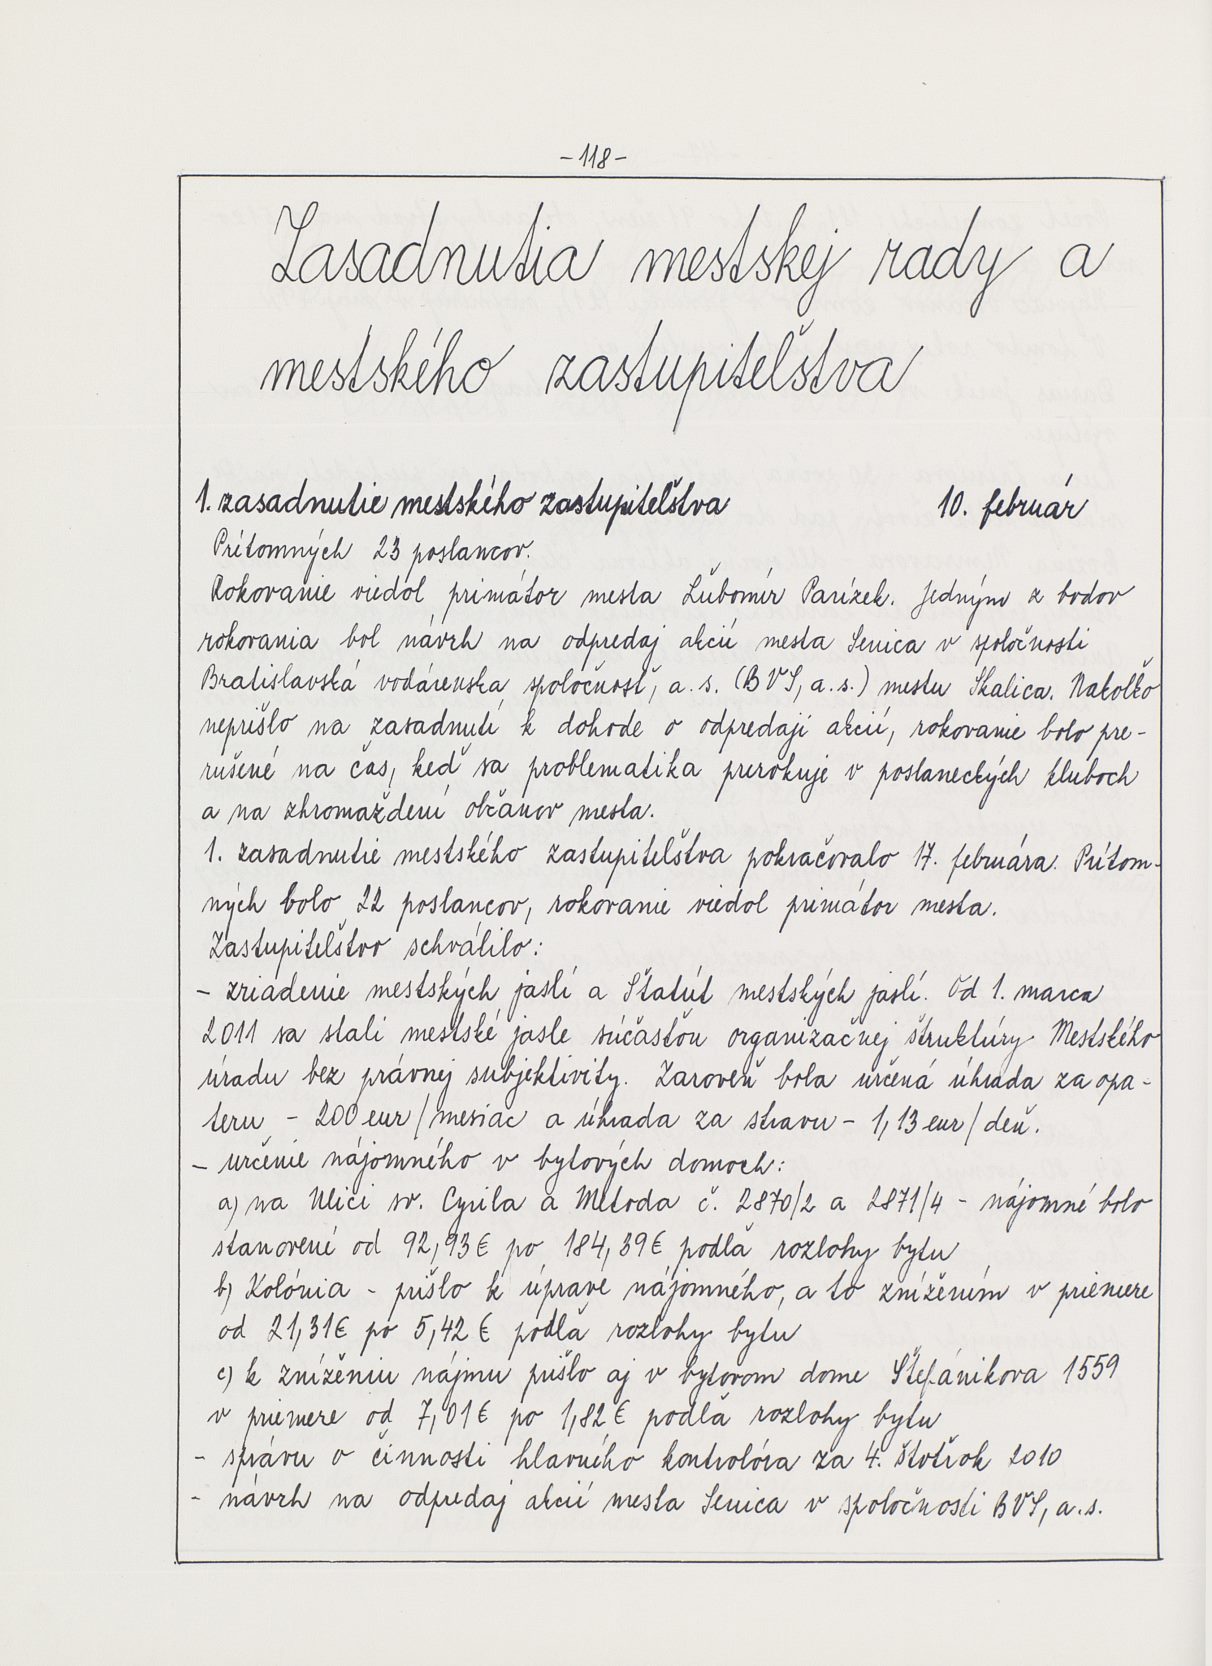 -118-
Zasadnutia mestskej rady a
mestského zastupiteľstva
1. zasadnutie mestského zastupiteľstva 10. február
Prítomných 23 poslancov.
Rokovanie viedol primátor mesta Ľubomír Parízek. Jedným z bodov
rokovania bol návrh na odpredaj akcií mesta Senica v spoločnosti
Bratislavská vodárenska spoločnosť, a.s. (BVS, a.s.) mestu Skalica. Nakoľko
neprišlo na zasadnutí k dohode o odpredaji akcií, rokovanie bolo pre-
rušené na čas, keď sa problematika prerokuje v poslaneckých kluboch
a na zhromaždení občanov mesta.
1. zasadnutie mestského zastupiteľstva pokračovalo 17. februára. Prítom-
ných bolo 22 poslancov, rokovanie viedol primátor mesta.
Zastupiteľstvo schválilo:
- zriadenie mestských jaslí a Štatút mestských jaslí. Od 1. marca
2011 sa stali mestské jasle súčasťou organizačnej štruktúry Mestského
úradu bez právnej subjektivity. Zároveň bola určená úhrada za opa-
teru - 200 eur/mesiac a úhrada za stravu - 1,13 eur/deň.
- určenie nájomného v bytových domoch:
a) na Ulici sv. Cyrila a Metoda č. 2870/2 a 2871/4 - nájomné bolo
stanovené od 92,93€ po 184,39€ podľa rozlohy bytu
b) Kolónia - prišlo k úprave nájomného, a to znížením v priemere
od 21,31€ po 5,42€ podľa rozlohy bytu
c) k zníženiu nájmu prišlo aj v bytovom dome Štefánikova 1559
v priemere od 7,01€ po 1,82€ podľa rozlohy bytu
- správu o činnosti hlavného kontrolóra za 4. štvťrok 2010
- návrh na odpredaj akcií mesta Senica v spoločnosti BVS, a.s.